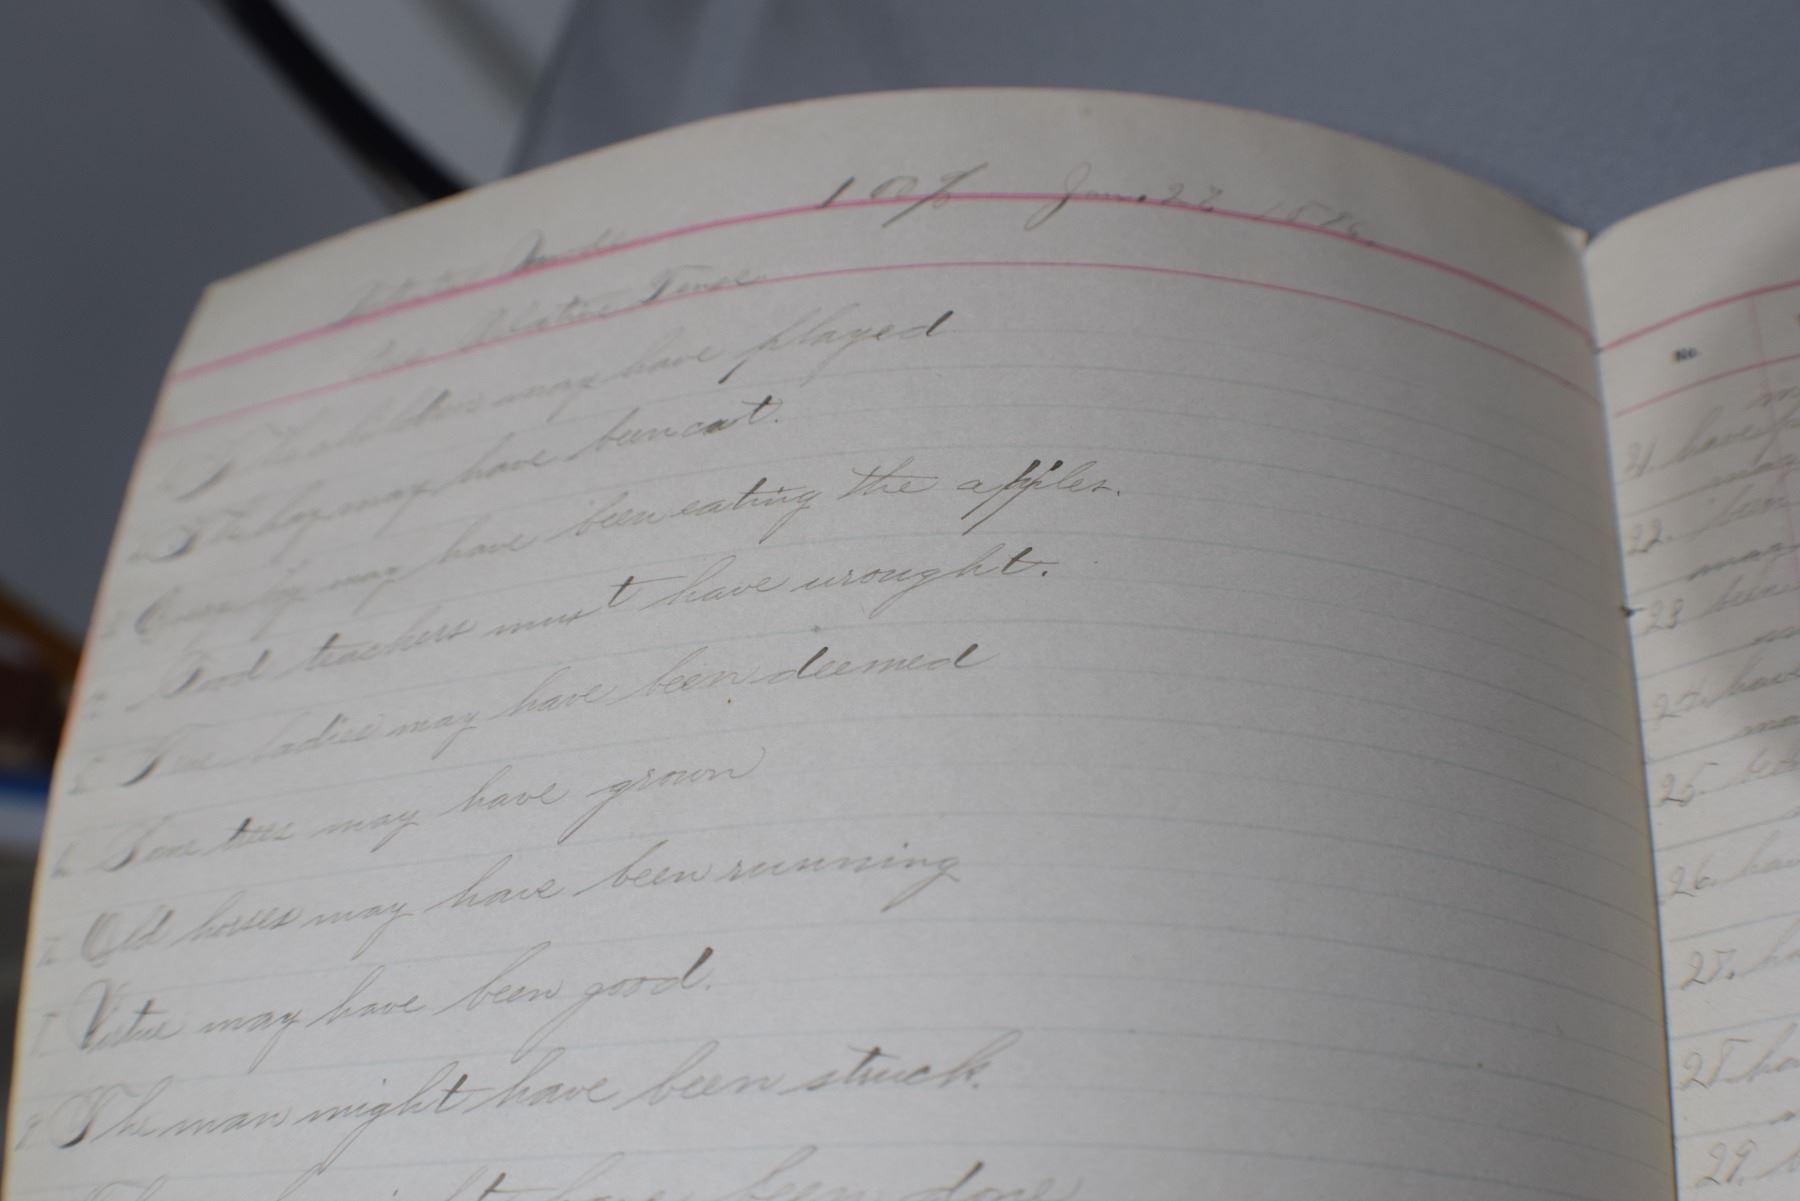 107 Jan. 27 1886.
Tense
The children may have played
The hay may have been cut.
boy may have been eating the apples.
Good teachers must have wrought.
True ladies may have been deemed
Some trees may have grown
Old horses may have been running
Virtue may have been good.
The man might have been struck.
might have been done
No.
21. have
22. been
23 been
24. have
25.
26. have
27. ha
28. ha
29.